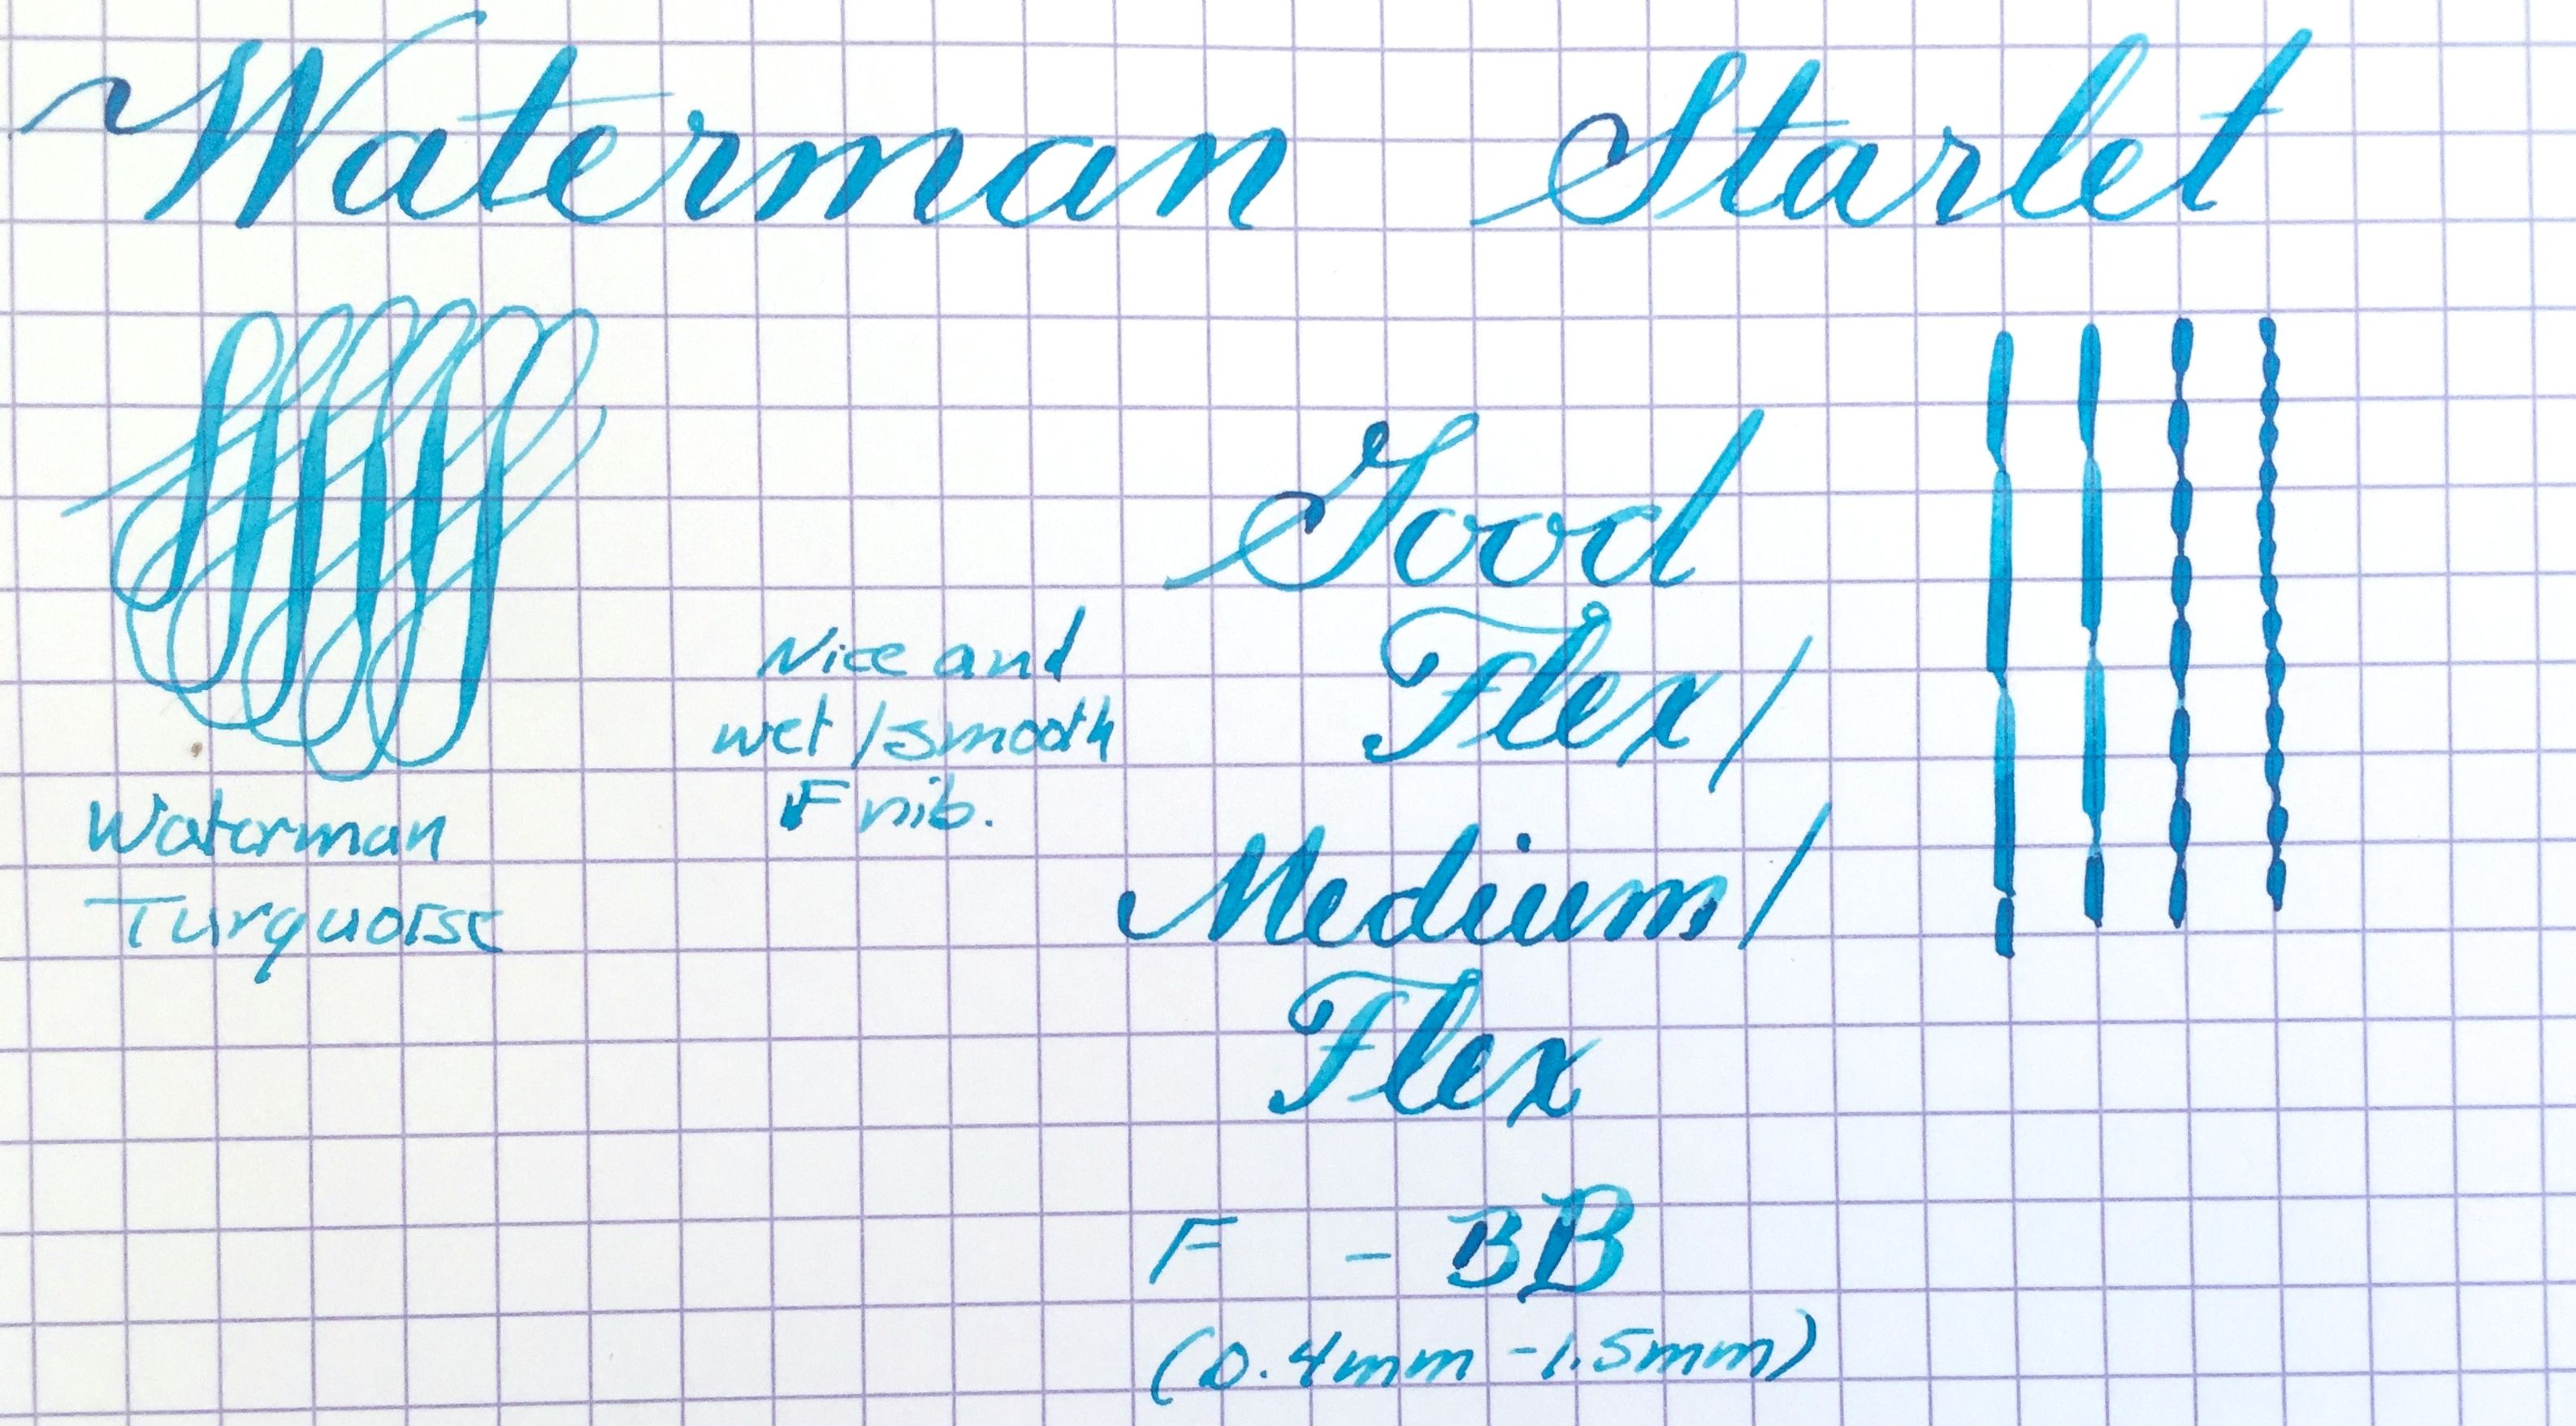 Waterman Starlet
Good
Flex/
Medium/
Flex
F - BB
(0.4mm - 1.5mm)
Nice and
wet/smooth
F nib.
Waterman
Turquoise